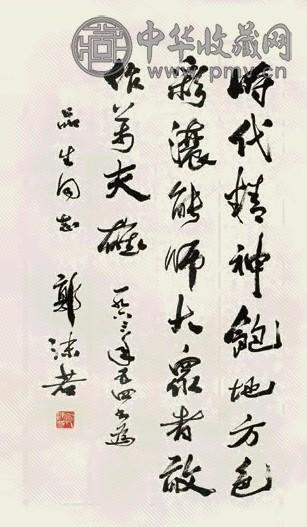 中华收藏网
時代精神飽地方色
彩濃能師大眾者敢
作萬夫雄 一九六三年五四書為
品生同志 郭沫若